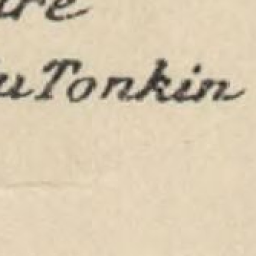 re
u Tonkin